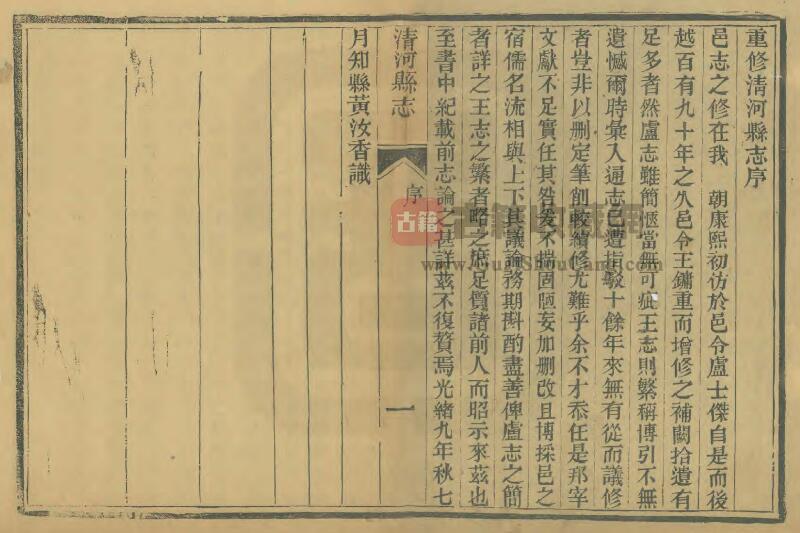 重修清河縣志序
邑志之修在我　朝康熙初仿於邑令盧士傑自是而後
越百有九十年之久邑令王鏞重而增修之補闕拾遺有
足多者然盧志雖簡愜當無可疵王志則繁稱博引不無
遺憾爾時彙入通志已遭指駁十餘年來無有從而議修
者豈非以删定筆削較續修尤難乎余不才忝任是邦宰
文獻不足實任其咎爰不揣固陋妄加删改且博採邑之
宿儒名流相與上下其議論務期斟酌盡善俾盧志之簡
者詳之王志之繁者略之庶足質諸前人而昭示來茲也
至書中紀載前志論之甚詳茲不復贅焉光緒九年秋七
清河縣志
序
一
月知縣黃汝香識
古籍
古籍收藏網
www.GuJiShouCang.com